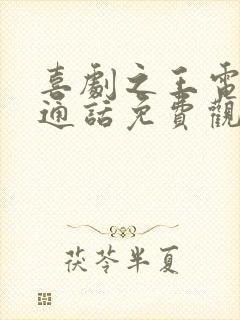 喜劇之王電
通話免費觀
茯苓半夏